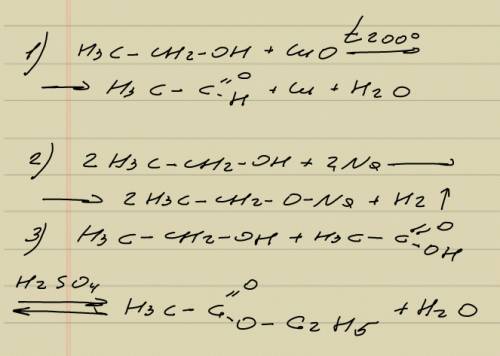 1) H3C-CH2-OH + CuO t200° ⟶
⟶ H3C-C(=O)H + Cu + H2O
2) 2H3C-CH2-OH + 2Na ⟶
⟶ 2H3C-CH2-O-Na + H2↑
3) H3C-CH2-OH + H3C-C(=O)OH
H2SO4 ⇄ H3C-C(=O)O-C2H5 + H2O